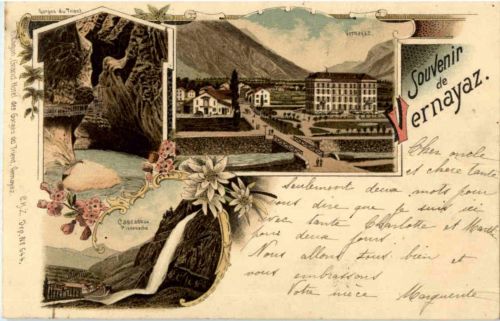 Gorges du Trient
Vernayaz.
Souvenir
de
Vernayaz.
Cascade de
Pissevache
Grand Hôtel des Gorges du Trient, Vernayaz.
Cher oncle
et chère tante
Seulement deux mots pour
vous dire que je suis ici
avec tante Charlotte et Marthe
pour deux jours.
Nous allons tous bien et
vous embrassons
Votre nièce Marguerite